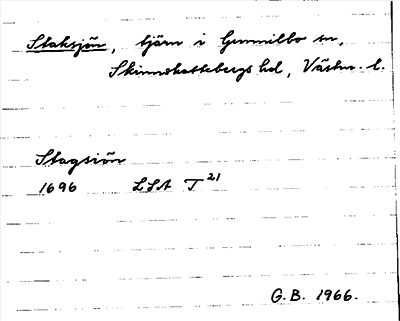 Staksjön, tjärn i Gunnilbo sn,
Skinnskattebergs hd, Västm. l.
Stagsiön
1696 LSA T 21
G.B. 1966.